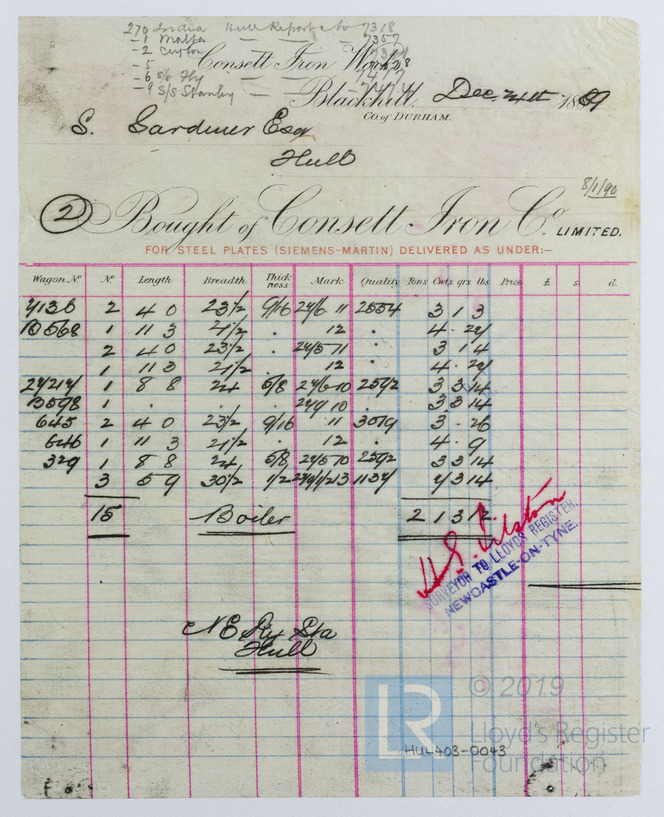 270 India Hull Report No 7318
-1 Malta — — - 7357
-2 Ceylon — — 
-5 — — 
-6 S/S Fly — — 7417
-9 S/S Stanley — — 7474
Consett Iron Works
Blackhill, Dec. 24th 1889
Co. of DURHAM.
S. Gardiner Esq
Hull
8/1/90
2 Bought of Consett Iron Co. LIMITED.
FOR STEEL PLATES (SIEMENS-MARTIN) DELIVERED AS UNDER:-
Wagon No. No. Length Breadth Thickness Mark Quality Tons Cwts qrs lbs Price £ s. d.
2 4 0 23½ 9/16 11 2554 3 1 3
1 11 3 21½ . 12 . 4 .
2 4 0 23½ . 11 . 3 1 4
1 11 3 21½ . 12 . 4 .
1 8 8 24 5/8 10 2592 3 3 14
1 . . . . 10 . 3 3 14
645 2 4 0 23½ 9/16 11 3019 3 . 26
646 1 11 3 21½ . 12 . 4 . 9
329 1 8 8 24 5/8 10 2592 3 3 14
3 5 9 30½ 1/2 3 14
15 Boiler 2 1 3 12
SURVEYOR TO LLOYDS REGISTER,
NEWCASTLE-ON-TYNE.
N E Ry Sta
Hull
© 2019
LR Lloyd's Register
Foundation
HUL403-0043